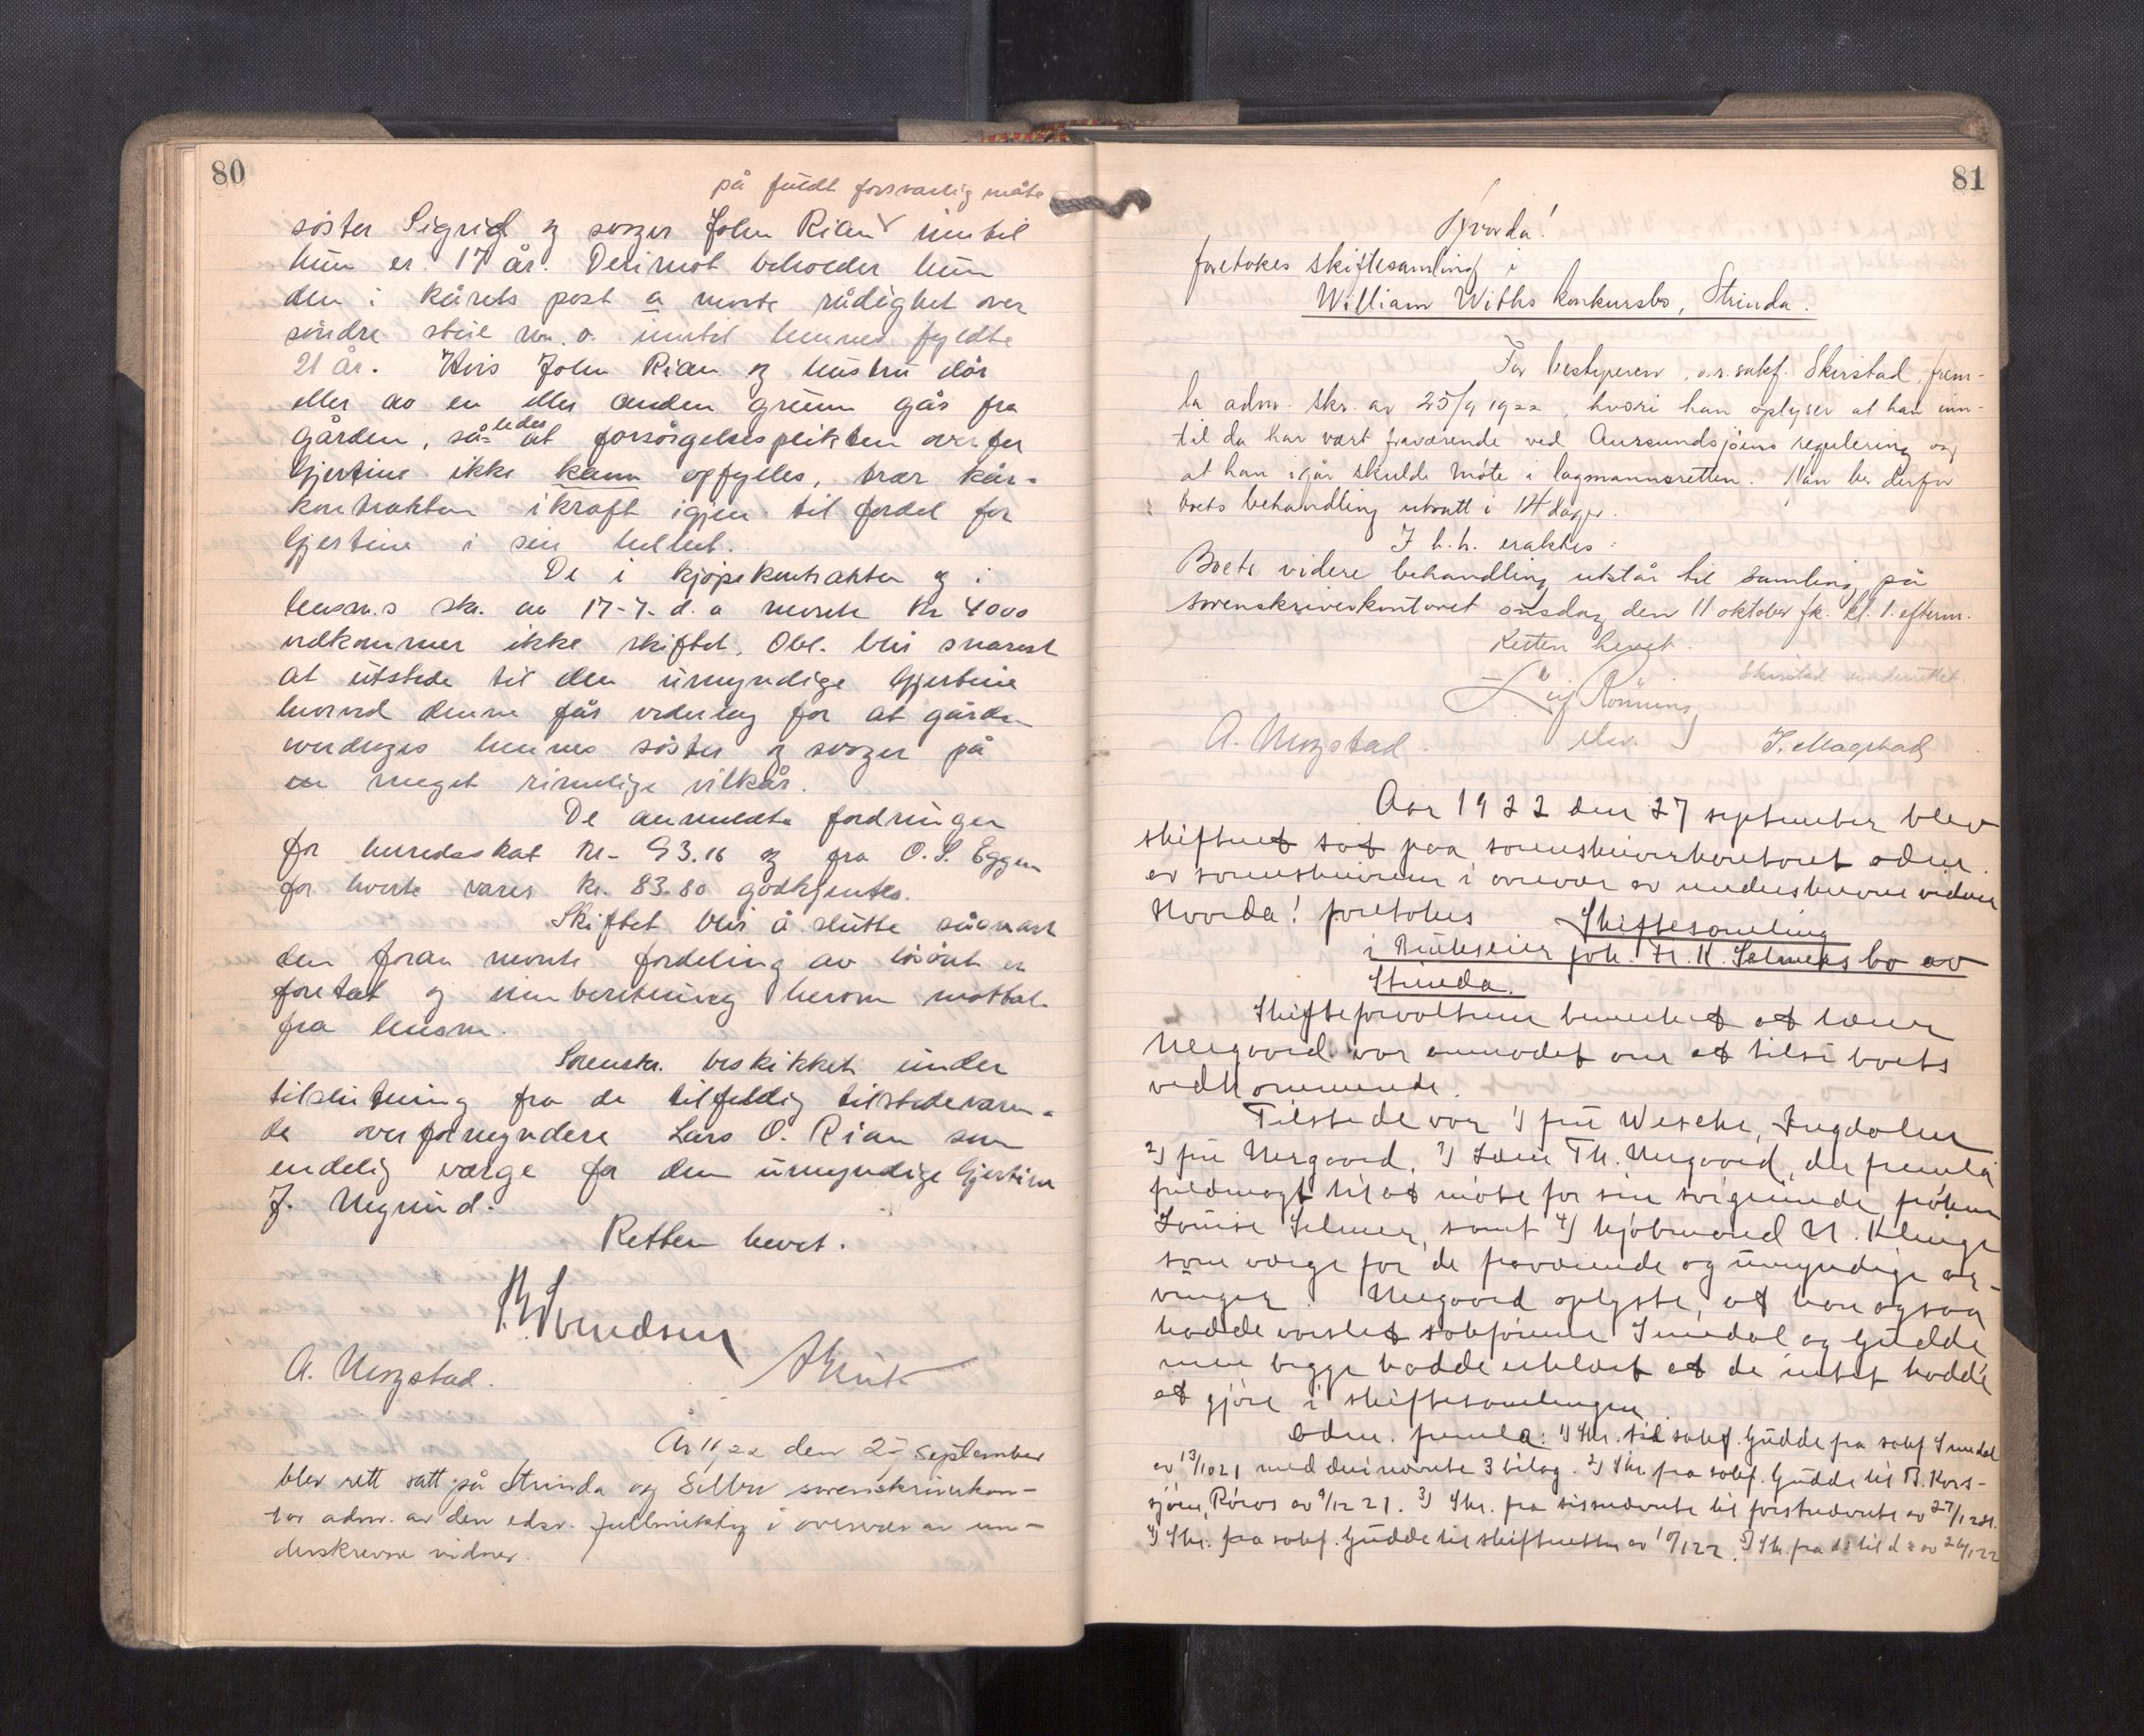 80
på fuldt forsvarlig måte
söster Sigrid og svoger John Rian inntil
hun er 17 år. Derimot beholder hun
den i kårets post a nevnte rådighet over
söndre stue m. v. inntil hennes fyldte
21 år. Hvis John Rian og hustru dör
eller av en eller anden grunn går fra
gården, således at forsörgelsesplikten overfor
Gjertine ikke kann opfylles, trær kår-
kontrakten ikraft igjen til fordel for
Gjertine i sin helhet.
De i kjöpekontrakten og i
lensm.s skr. av 17-7. d. a nevnte kr 4000
vedkommer ikke skiftet. Obl. blir snarest
at utstede til den umyndige Gjertine
hvorved denne får vederlag for at gården
overdrages hennes söster og svoger på
en meget rimelige vilkår.
De anmeldte fordringer
for herredsskat kr. 93.16 og fra O. S. Eggen
for leverte varer kr. 83.80 godkjentes.
Skiftet blir å slutte såsnart
den foran nevnte fordeling av lösöre er
foretat og innberetning herom mottat
fra lensm.
Sorenskr. beskikket under
tilslutning fra de tilfeldig tilstedeværen-
de overformyndere Lars O. Rian som
endelig værge for den umyndige Gjertine
J. Myrind.
Retten hevet.
Svendsen
A. Mogstad.
År 1922 den 27 september
blev rett satt på Strinda og Selbu sorenskriverkon-
tor adm. av den edsv. fullmektig i overvær av un-
derskrevne vidner.
81
Hvorda!
foretokes skiftesamling i
William Withs konkursbo, Strinda.
For bestyreren, o.r.sakf. Skirstad, frem-
la adm. skr. av 25/9 1922, hvori han oplyser at han inn-
til da har vært fraværende ved Aursundsjöens regulering og
at han igår skulde möte i lagmannsretten. Han ber derfor
boets behandling utsatt i 14 dager.
I h. h. eraktes:
Boets videre behandling utstår til samling på
sorenskriverkontoret onsdag den 11 oktober fk. kl. 1. efterm.
Retten hevet.
Skirstad underrettet.
Leif Rönning
edsv.
A. Mogstad. J. Magstad
Aar 1922 den 27 september blev
skifteret sat paa sorenskriverkontoret adm.
av sorenskriveren i overvær av underskrevne vidner
Hvorda! foretokes Skiftesamling
i Brukseier Joh. Fr. K. Selmers bo av
Strinda.
Skifteforvalteren bemerket at læren
Neergaard var anmodet om at tilsi boets
vedkommende.
Tilstede var 1) fru Wesche, Inngdalen
2) fru Neergaard, 3) Th. Neergaard, der fremla
fuldmagt til at möte for sin svigerinde fröken
Louise Selmer, samt 4) kjöbmand N. Klinge
som værge for de fraværende og umyndige ar-
vinger. Neergaard oplyste, at han ogsaa
hadde varslet sakförerne Smedal og Gudde
men begge hadde erklært at de intet hadde
at gjöre i skiftesamlingen
Adm. fremla: 1) Skr. til sakf. Gudde fra sakf Smedal
av 13/10 21 med deri nævnte 3 bilag. 2) Skr. fra sakf. Gudde til B. Kors-
sjöen, Röros av 9/12 21. 3) Skr. fra sistnævnte til förstnævnte av 27/12 21.
4) Skr. fra sakf. Gudde til skifteretten av 10/1 22. 5) Skr. fra do til do av 26/1 22